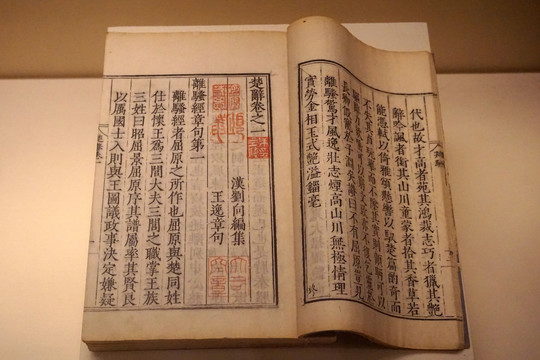 代也故才高者菀其鴻裁志巧者獵其艷
辭吟諷者銜其山川童蒙者拾其香草若
能馮軾以倚雅頌懸轡以馭楚篇酌奇而
不失其貞
離騷驚才風逸壯志煙高山川無極情理
實勞金相玉式艷溢錙毫
楚辭卷之一
漢劉向編集
王逸章句
離騷經章句第一
離騷經者屈原之所作也屈原與楚同姓
仕於懷王為三閭大夫三閭之職掌王族
三姓曰昭屈景屈原序其譜屬率其賢良
以厲國士入則與王圖議政事決定嫌疑